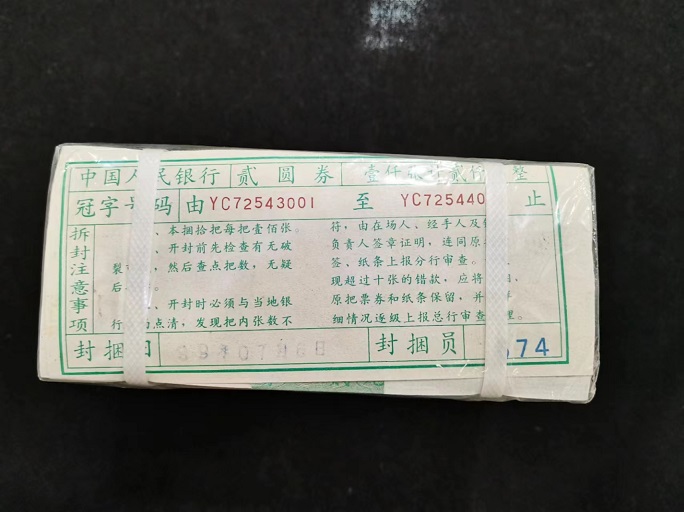 中国人民银行 贰圆券 壹仟张计贰仟 整
冠字号码 由 YC72543001 至 YC725440 止
拆封注意事项
、本捆拾把每把壹佰张。
、开封前先检查有无破
裂 ，然后查点把数，无疑
后
、开封时必须与当地银
行 点清，发现把内张数不
符，由在场人、经手人及
负责人签章证明，连同原
签、纸条上报分行审查。
现超过十张的错款，应将
原把票券和纸条保留，并
细情况逐级上报总行审查 理。
封捆 封捆员 74